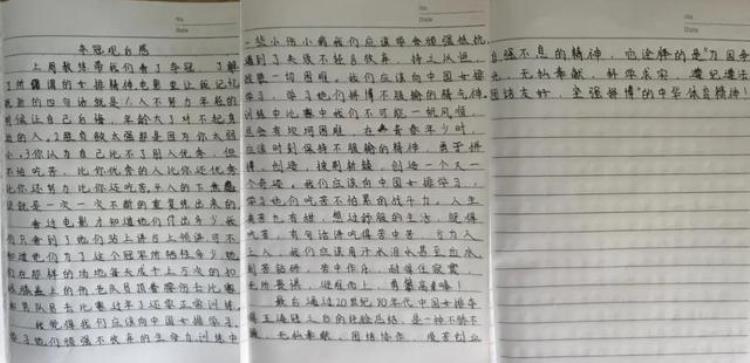 No.
Date
夺冠观后感
上周教练带我们看了夺冠,了解
了所谓的女排精神电影里让我记忆
犹新的四句话就是1.人不努力年轻的
时候让自己后悔,年龄大了对不起身
边的人。2.胜负欲太强那是因为你太弱
小。3.你认为自己比不了别人优秀,但
不怕吃苦,比你优秀的人比你还优秀
比你还努力比你还吃苦。4.人的下
限就是一次一次不断的重复练出来的
看过电影才知道她们付出多少我
们只看到了他们站上讲台上领讲可不
知道他们为了这个冠军所牺牲多少她
们在那样的场地每天成千上万次的扣
球膝盖上的伤老队员顶着腰伤去比赛
和男队员去比赛过年了还要正常训练。
我觉得我们应该向中国女排学习,
学习他们顽强不放弃的生命力训练中
No.
Date
一些小伤小病我们应该学会顽强抵抗
遇到了失败不轻言放弃,持之以恒,
战胜一切困难。我们应该向中国女排
学习,学习他们拼搏不服输的精气神。
训练中比赛中我们不可能一帆风顺,
总会有坎坷困难,在青春年少时,
应该时刻保持不服输的精神,勇于拼
搏,创造,披荆斩棘,创造一个又一
个奇迹。我们应该向中国女排学习,
学习他们吃苦不怕累的战斗力。人生
有苦也有甜,想过舒服的生活,就得
吃苦,有句话讲吃得苦中苦,方为人
上人,我们应该用汗水泪水甚至血水,
刻苦钻研,苦中作乐,耐得住寂寞,
无所畏惧,迎难而上,勇攀高峰!
最后通过20世纪80年代中国女排夺
得五连冠之后的经验总结,是一种不骄不
躁,无私奉献,团结协作,艰苦创业
No.
Date
自强不息的精神,它诠释的是“为国争
光,无私奉献,科学求实,遵纪守法
团结友好,坚强拼搏”的中华体育精神!